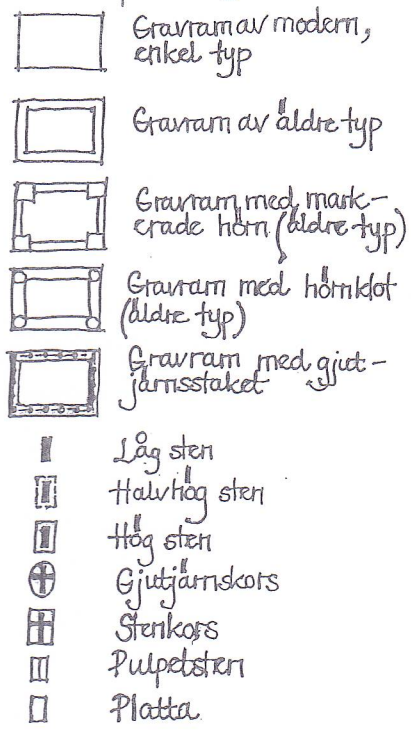 Gravram av modern,
enkel typ
Gravram av äldre typ
Gravram med mark-
erade hörn (äldre typ)
Gravram med hörnklot
(äldre typ)
Gravram med gjut-
järnsstaket
Låg sten
Halvhög sten
Hög sten
Gjutjärnskors
Stenkors
Pulpetsten
Platta